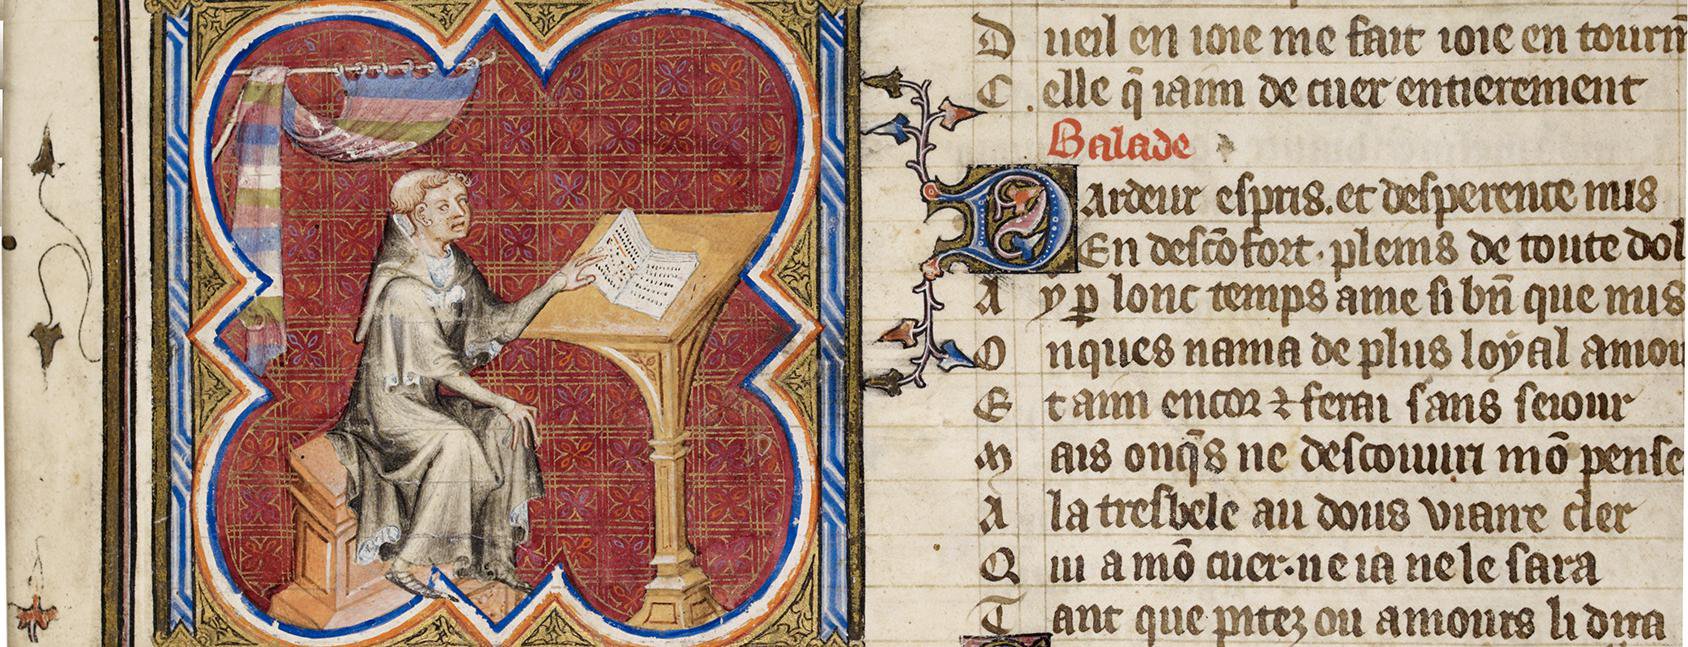 Dueil en ioie me fait ioie en tourn
Celle q̄ iaim de cuer entierement
Balade
Dardeur espris. et desperence mis
En descōfort. pleins de toute dol
Ay ꝑ lonc temps ame si bn̄ que mis
Onques nama de plus loyal amou
Et aim encor ⁊ ferai sans seiour
Mais onq̄s ne descouuri mō pense
A la tresbele au dous viaire cler
Qui a mō cuer. ne ia ne le sara
Tant que pitez ou amours li dira